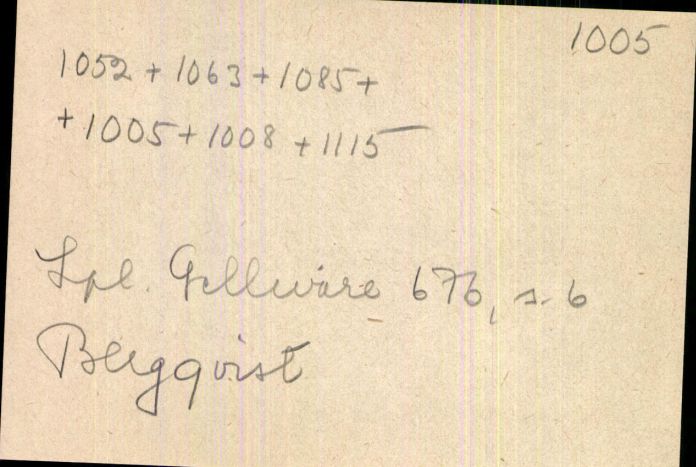 1005
1052 + 1063 + 1085 +
+ 1005 + 1008 + 1115
Spl. Gellivare 676, s. 6
Bergqvist